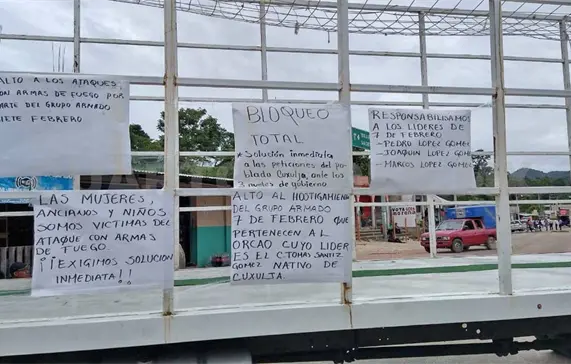 ALTO A LOS ATAQUES
CON ARMAS DE FUEGO POR
PARTE DEL GRUPO ARMADO
SIETE FEBRERO
LAS MUJERES,
ANCIANOS Y NIÑOS
SOMOS VICTIMAS DEL
ATAQUE CON ARMAS
DE FUEGO.
¡¡EXIGIMOS SOLUCIÓN
INMEDIATA!!
BLOQUEO
TOTAL
* Solución inmediata
a las peticiones del po-
blado Cuxulja, ante los
3 niveles de gobierno
ALTO AL HOSTIGAMIENTO
DEL GRUPO ARMADO
7 DE FEBRERO QUE
PERTENECEN AL
ORCAO CUYO LIDER
ES EL C. TOMAS SANTIZ
GOMEZ NATIVO DE
CUXULTA.
RESPONSABILIZAMOS
A LOS LIDERES DE
7 DE FEBRERO
- PEDRO LOPEZ GOMEZ
- JOAQUIN LOPEZ GOMEZ
- MARCOS LOPEZ GOMEZ